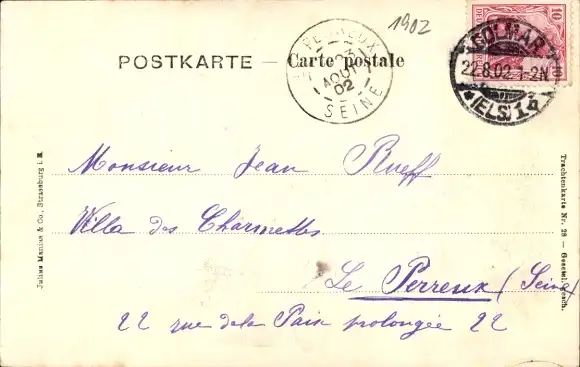 1902
10
COLMAR
22.8.02.1-2N
*(ELS)1d
LE PERREUX
23
AOUT
02
SEINE
POSTKARTE – Carte postale
Monsieur Jean Rueff
Villa des Charmettes
Le Perreux (Seine)
22 rue de la Paix prolongée 22
Julius Manias & Co., Strassburg i. E.
Trachtenkarte Nr. 28 – Gesetzl. gesch.